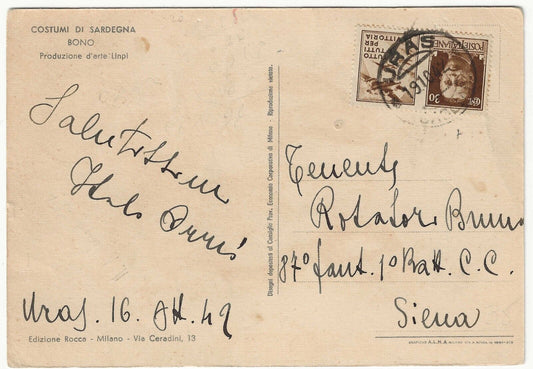 COSTUMI DI SARDEGNA
BONO
Produzione d'arte Linpi
Salutissimi
Italo
Uras. 16.
Edizione Rocca - Milano - Via Ceradini, 13
Disegni depositati al Consiglio Prov. Economia Corporativa di Milano - Riproduzione vietata.
TUTTO
PER
VITTORIA
POSTE ITALIANE
30
URAS
Tenente
Rotatori Bruno
87° fant. 1° Batt. C. C.
Siena